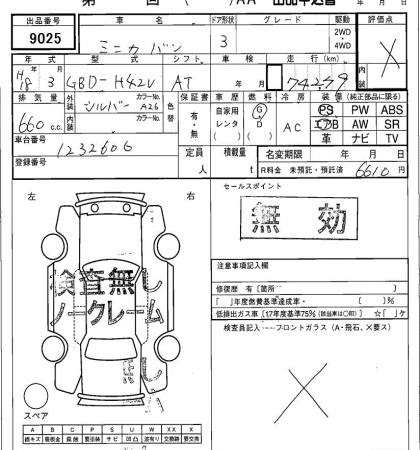 第 回 ( )/AA 出品申込書 年 月 日
出品番号 車名 ドア形状 グレード 駆動 評価点
9025 ミニカバン 3 2WD・4WD
年式 型式 シフト 車検 走行(km) 内装
H18年3月 GBD-H42V AT 年 月
排気量 外装 カラーNo. 色替 保証書 車歴 燃料 冷房 装備(純正部品に限る)
660c.c. シルバー A26 有・無 自家用 レンタ ( ) G・D ( ) AC PS PW ABS
内装 カラーNo. エアB AW SR
革 ナビ TV
車台番号
1232606 定員 人 積載量 t 名変期限 年 月 日
登録番号 R料金 未預託・預託済 6610円
セールスポイント
左 右
無効
検査無し
ノークレーム
注意事項記入欄
修復歴 有〔箇所 〕
「 」年度燃費基準達成車・( )%
低排出ガス車「17年度基準75%(該当車は〇用)」☆「 」ヶ
検査員記入 フロントガラス(A・飛石、X要ス)
スペア
A B C P S U W XX X
線キズ 要板金 腐蝕 要塗装 サビ 凹凸 波有り 交換跡 要交換